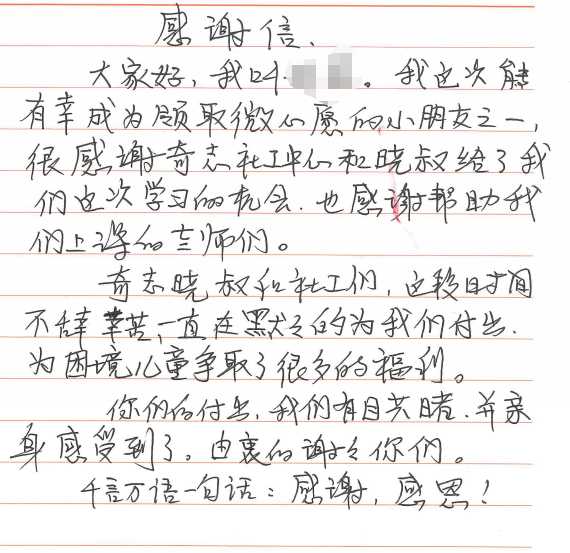 感谢信.
大家好，我叫 。我这次能
有幸成为领取微心愿的小朋友之一，
很感谢奇志社工中心和晓叔给了我
们这次学习的机会.也感谢帮助我
们上课的老师们。
奇志晓叔和社工们，这段时间
不辞辛苦，一直在默々的为我们付出.
为困境儿童争取了很多的福利。
你们的付出，我们有目共睹.并亲
身感受到了。由衷的谢々你们。
千言万语一句话：感谢，感恩！